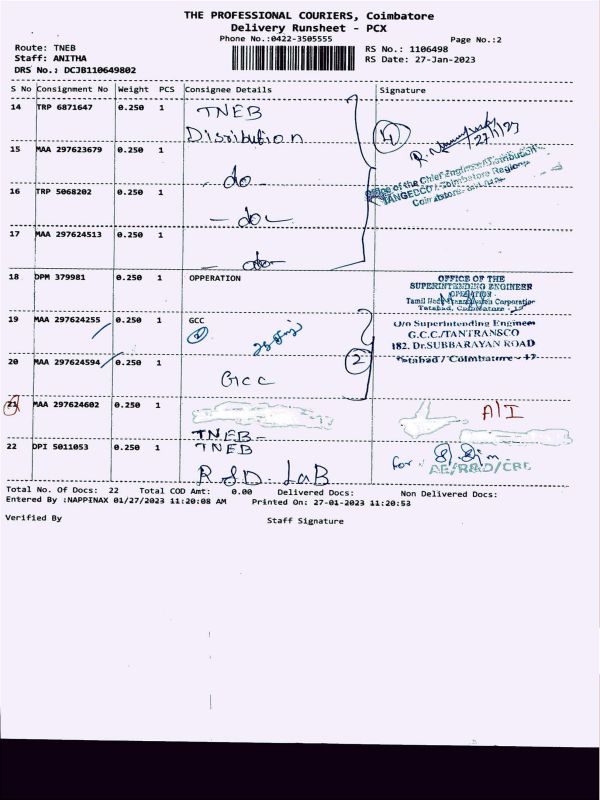 THE PROFESSIONAL COURIERS, Coimbatore
Delivery Runsheet - PCX
Phone No.:0422-3505555
Page No.:2
Route: TNEB
RS No.: 1106498
Staff: ANITHA
RS Date: 27-Jan-2023
DRS No.: DCJB110649802
S No Consignment No Weight PCS Consignee Details Signature
14 TRP 6871647 0.250 1 TNEB
Distribution
4
27/1/23
15 MAA 297623679 0.250 1
- do -
Office of the Chief Engineer/Distribution
TANGEDCO / Coimbatore Region
16 TRP 5068202 0.250 1
- do -
17 MAA 297624513 0.250 1
- do -
18 DPM 379981 0.250 1 OPPERATION
OFFICE OF THE
SUPERINTENDING ENGINEER
OPERATION
19 MAA 297624255 0.250 1 GCC
2
O/o Superintending Engineer
G.C.C./TANTRANSCO
182. Dr.SUBBARAYAN ROAD
Tatabad / Coimbatore - 12
20 MAA 297624594 0.250 1
GCC
2
21 MAA 297624602 0.250 1
A/I
TNEB -
22 DPI 5011053 0.250 1 TNEB
R & D. LaB
for
AE/R&D/CBE
Total No. Of Docs: 22 Total COD Amt: 0.00 Delivered Docs: Non Delivered Docs:
Entered By :NAPPINAX 01/27/2023 11:20:08 AM Printed On: 27-01-2023 11:20:53
Verified By Staff Signature